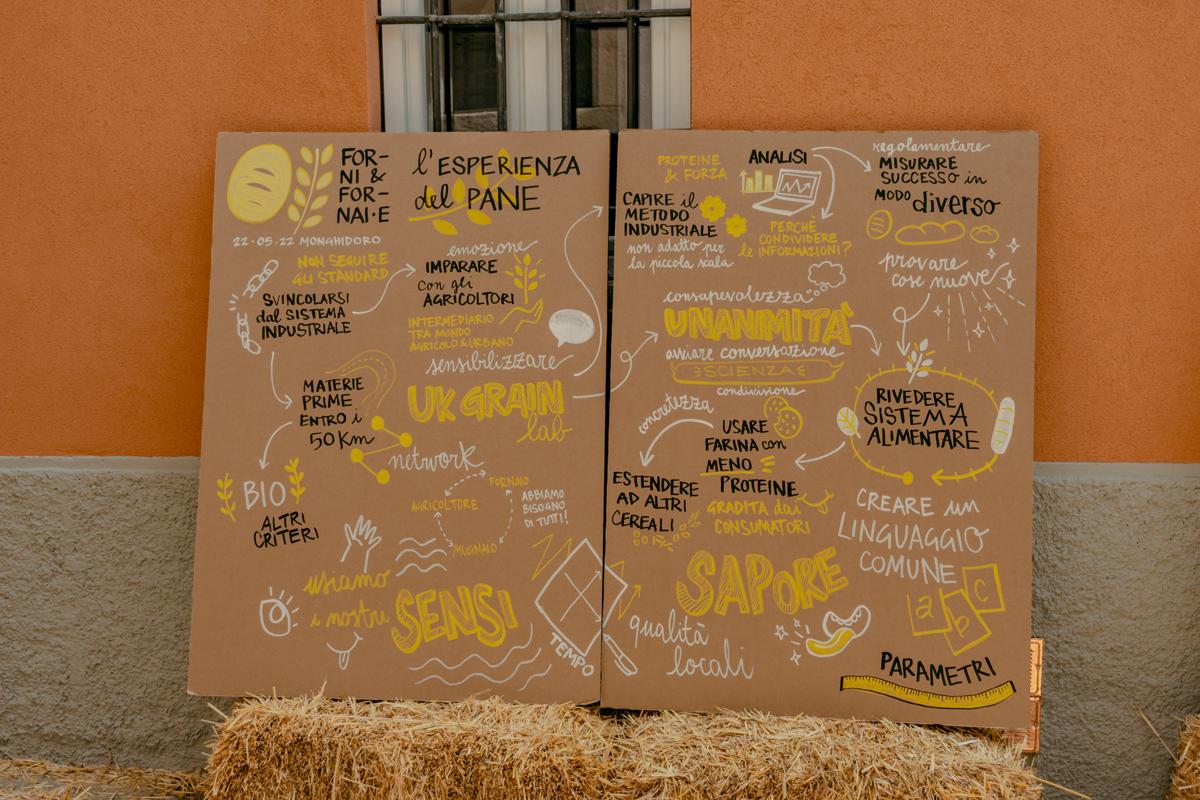 FOR-
NI &
FOR-
NAI·E
l'ESPERIENZA
del PANE
22·05·22 MONGHIDORO
NON SEGUIRE
GLI STANDARD
SVINCOLARSI
dal SISTEMA
INDUSTRIALE
emozione
IMPARARE
con gli
AGRICOLTORI
INTERMEDIARIO
TRA MONDO
AGRICOLO & URBANO
sensibilizzare
MATERIE
PRIME
ENTRO i
50 Km
UK GRAIN
lab
network
FORNAIO
AGRICOLTORE
MUGNAIO
ABBIAMO
BISOGNO
DI TUTTI!
BIO
ALTRI
CRITERI
usiamo
i nostri
SENSI
TEMPO
PROTEINE
& FORZA
ANALISI
regolamentare
MISURARE
SUCCESSO in
MODO diverso
CAPIRE il
METODO
INDUSTRIALE
non adatto per
la piccola scala
PERCHÈ
CONDIVIDERE
le INFORMAZIONI?
provare
cose nuove
consapevolezza
UNANIMITA'
avviare conversazione
SCIENZA
condivisione
concretezza
USARE
FARINA con
MENO
PROTEINE
GRADITA dai
CONSUMATORI
RIVEDERE
SISTEMA
ALIMENTARE
ESTENDERE
AD ALTRI
CEREALI
CREARE un
LINGUAGGIO
COMUNE
a
b
c
SAPORE
qualità
locali
PARAMETRI